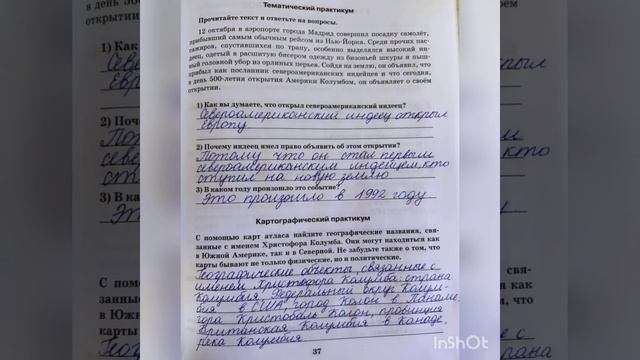 Тематический практикум
Прочитайте текст и ответьте на вопросы.
12 октября в аэропорте города Мадрид совершил посадку самолёт,
прибывший самым обычным рейсом из Нью-Йорка. Среди прочих пас-
сажиров, спустившихся по трапу, особенно выделялся высокий ин-
деец, одетый в расшитую бисером одежду из бизоньей шкуры и пыш-
ный головной убор из орлиных перьев. Сойдя на землю, он объявил, что
прибыл как посланник североамериканских индейцев и что сегодня,
в день 500-летия открытия Америки Колумбом, он объявляет о своём
открытии.
1) Как вы думаете, что открыл североамериканский индеец?
Североамериканский индеец открыл
Европу
2) Почему индеец имел право объявить об этом открытии?
Потому что он стал первым
североамериканским индейцем, кто
ступил на новую землю
3) В каком году произошло это событие?
Это произошло в 1992 году
Картографический практикум
С помощью карт атласа найдите географические названия, свя-
занные с именем Христофора Колумба. Они могут находиться как
в Южной Америке, так и в Северной. Не забудьте также о том, что
карты бывают не только физические, но и политические.
Географические объекты, связанные с
именем Христофора Колумба: страна
Колумбия, Федеральный округ Колум-
бия в США, город Колон в Панаме,
гора Кристобаль Колон, провинция
Британская Колумбия в Канаде,
река Колумбия
37
InShOt